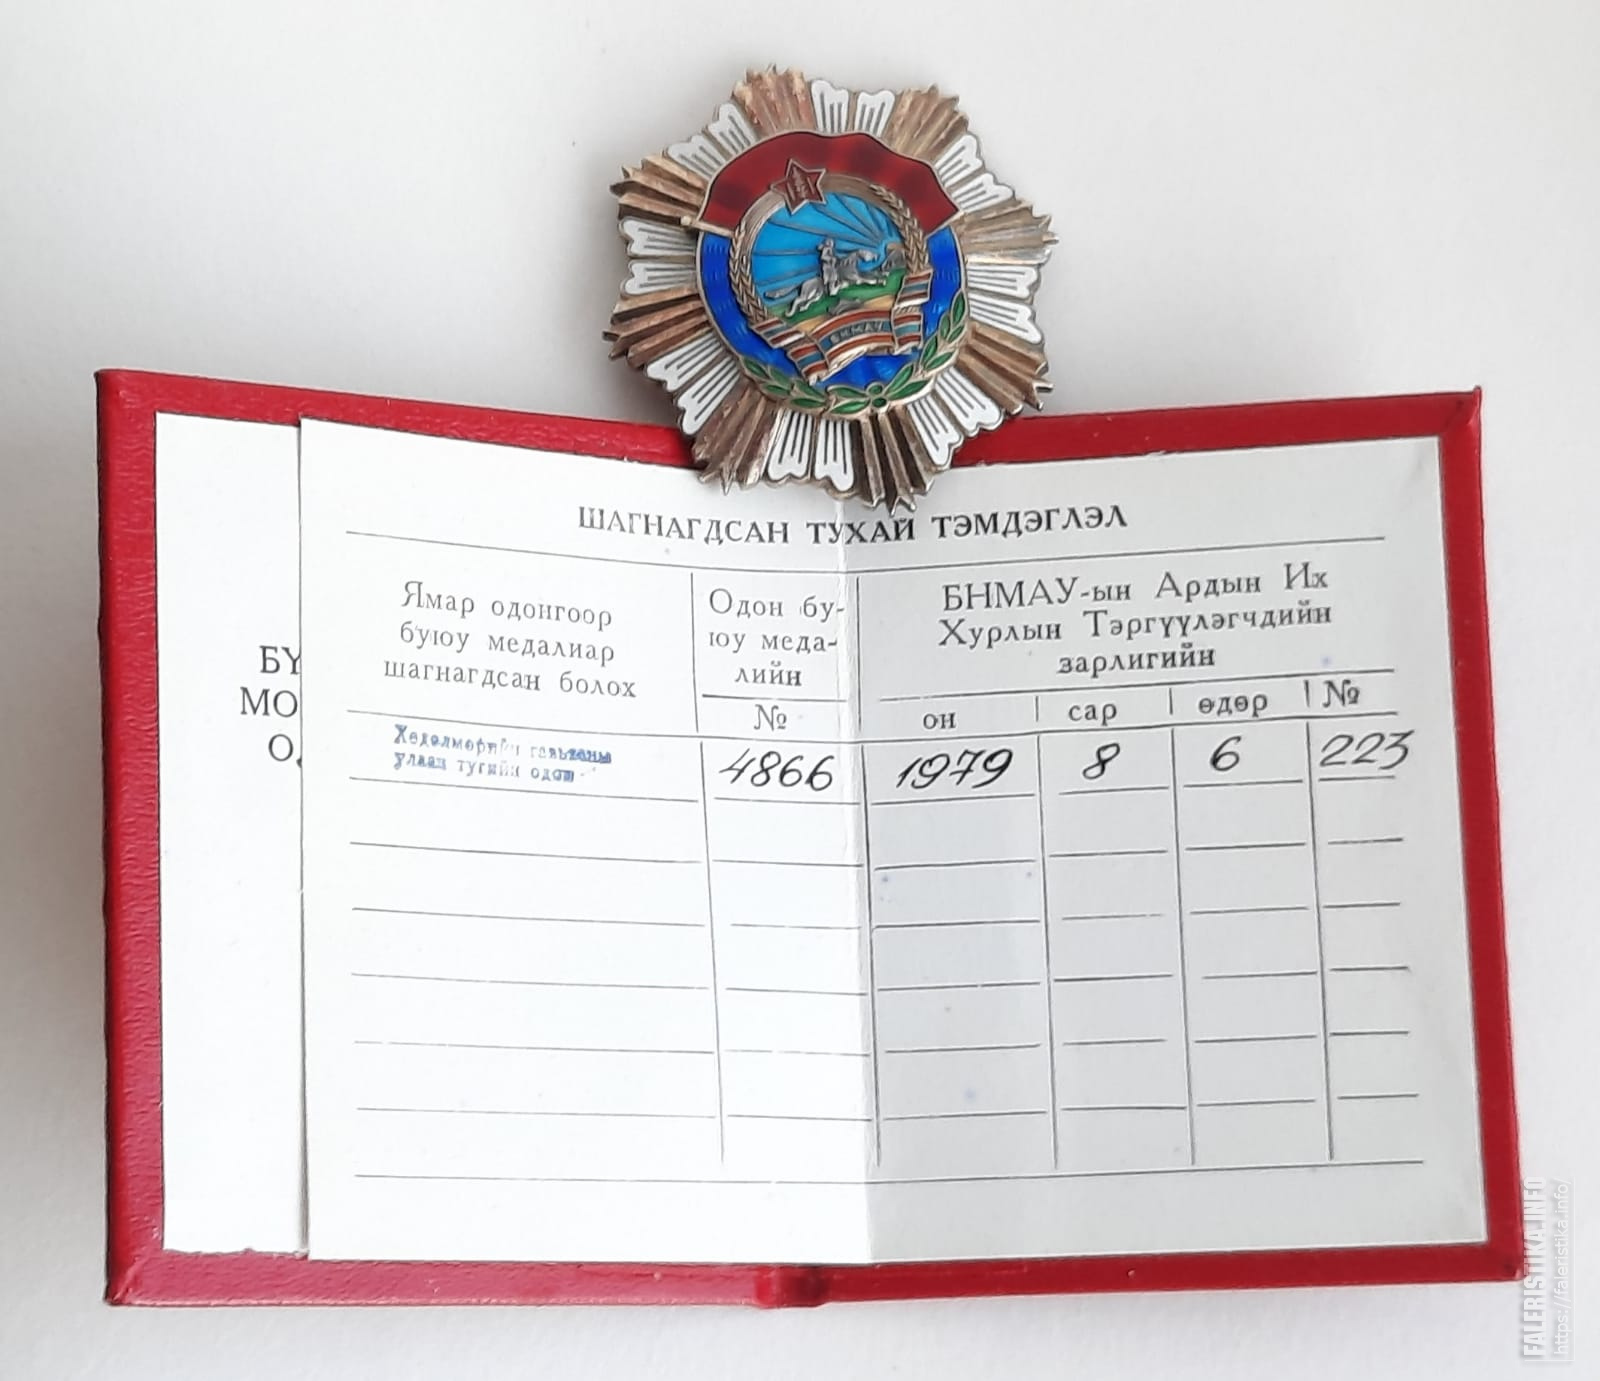 БНМАУ
ШАГНАГДСАН ТУХАЙ ТЭМДЭГЛЭЛ
Ямар одонгоор
буюу медалиар
шагнагдсан болох
Одон бу-
юу меда-
лийн
№
БНМАУ-ын Ардын Их
Хурлын Тэргүүлэгчдийн
зарлигийн
он сар өдөр №
БҮ
МО
О
Хөдөлмөрийн гавьяаны
улаан тугийн одон
4866 1979 8 6 223
FALERISTIKA.INFO
https://faleristika.info/